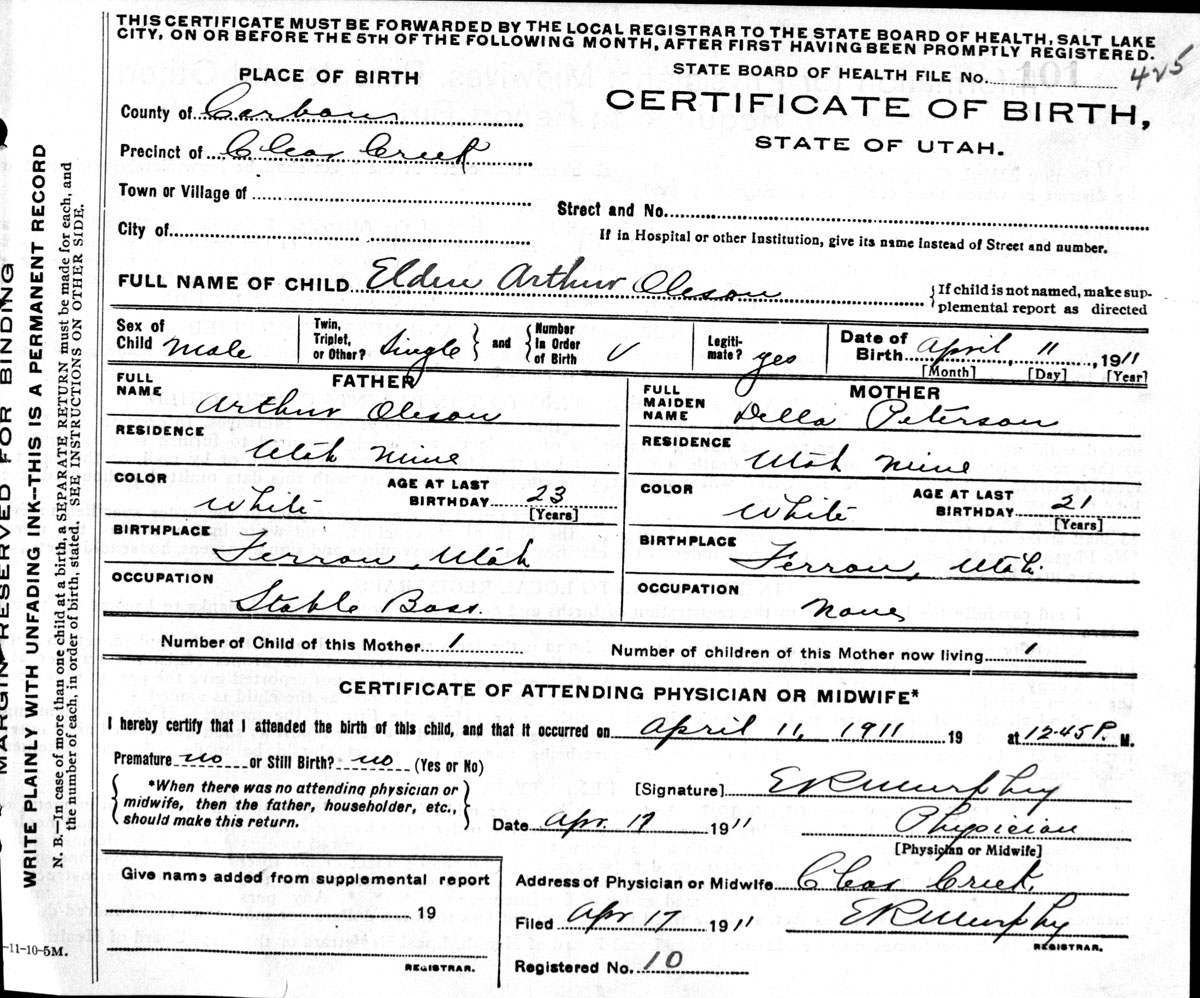 THIS CERTIFICATE MUST BE FORWARDED BY THE LOCAL REGISTRAR TO THE STATE BOARD OF HEALTH, SALT LAKE
CITY, ON OR BEFORE THE 5TH OF THE FOLLOWING MONTH, AFTER FIRST HAVING BEEN PROMPTLY REGISTERED.
PLACE OF BIRTH
STATE BOARD OF HEALTH FILE No. 101 425
County of Carbon
CERTIFICATE OF BIRTH,
STATE OF UTAH.
Precinct of Clear Creek
Town or Village of
Street and No.
City of
If in Hospital or other Institution, give its name instead of Street and number.
FULL NAME OF CHILD Elden Arthur Oleson
If child is not named, make sup-
plemental report as directed
Sex of Child Male
Twin, Triplet, or Other? Single and Number In Order of Birth
Legiti-mate? yes
Date of Birth April 11, 1911
[Month] [Day] [Year]
FATHER
FULL NAME Arthur Oleson
RESIDENCE Utah Mine
COLOR White AGE AT LAST BIRTHDAY 23 [Years]
BIRTHPLACE Ferron, Utah
OCCUPATION Stable Boss.
MOTHER
FULL MAIDEN NAME Della Peterson
RESIDENCE Utah Mine
COLOR White AGE AT LAST BIRTHDAY 21 [Years]
BIRTHPLACE Ferron, Utah.
OCCUPATION None
Number of Child of this Mother 1
Number of children of this Mother now living 1
CERTIFICATE OF ATTENDING PHYSICIAN OR MIDWIFE*
I hereby certify that I attended the birth of this child, and that it occurred on April 11, 1911 19 at 12-45 P. M.
Premature no or Still Birth? no (Yes or No)
*When there was no attending physician or
midwife, then the father, householder, etc.,
should make this return.
[Signature] E R Murphy
Date Apr. 17 1911 Physician
[Physician or Midwife]
Give name added from supplemental report
19
REGISTRAR.
Address of Physician or Midwife Clear Creek.
Filed Apr 17 1911 E R Murphy
REGISTRAR.
Registered No. 10
MARGIN RESERVED FOR BINDING
WRITE PLAINLY WITH UNFADING INK--THIS IS A PERMANENT RECORD
N. B.--In case of more than one child at a birth, a SEPARATE RETURN must be made for each, and
the number of each, in order of birth, stated. SEE INSTRUCTIONS ON OTHER SIDE.
-11-10-5M.